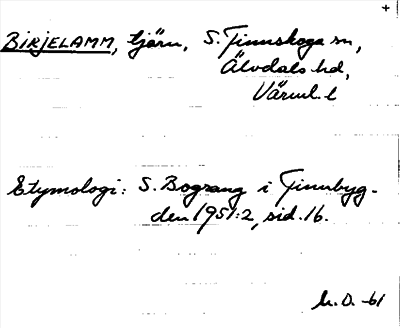 +
BIRJELAMM, tjärn, S. Finnskoga sn,
Älvdals hd,
Värml. l
Etymologi: S. Bograng i Finnbyg-
den 1951:2, sid. 16.
h.O. -61